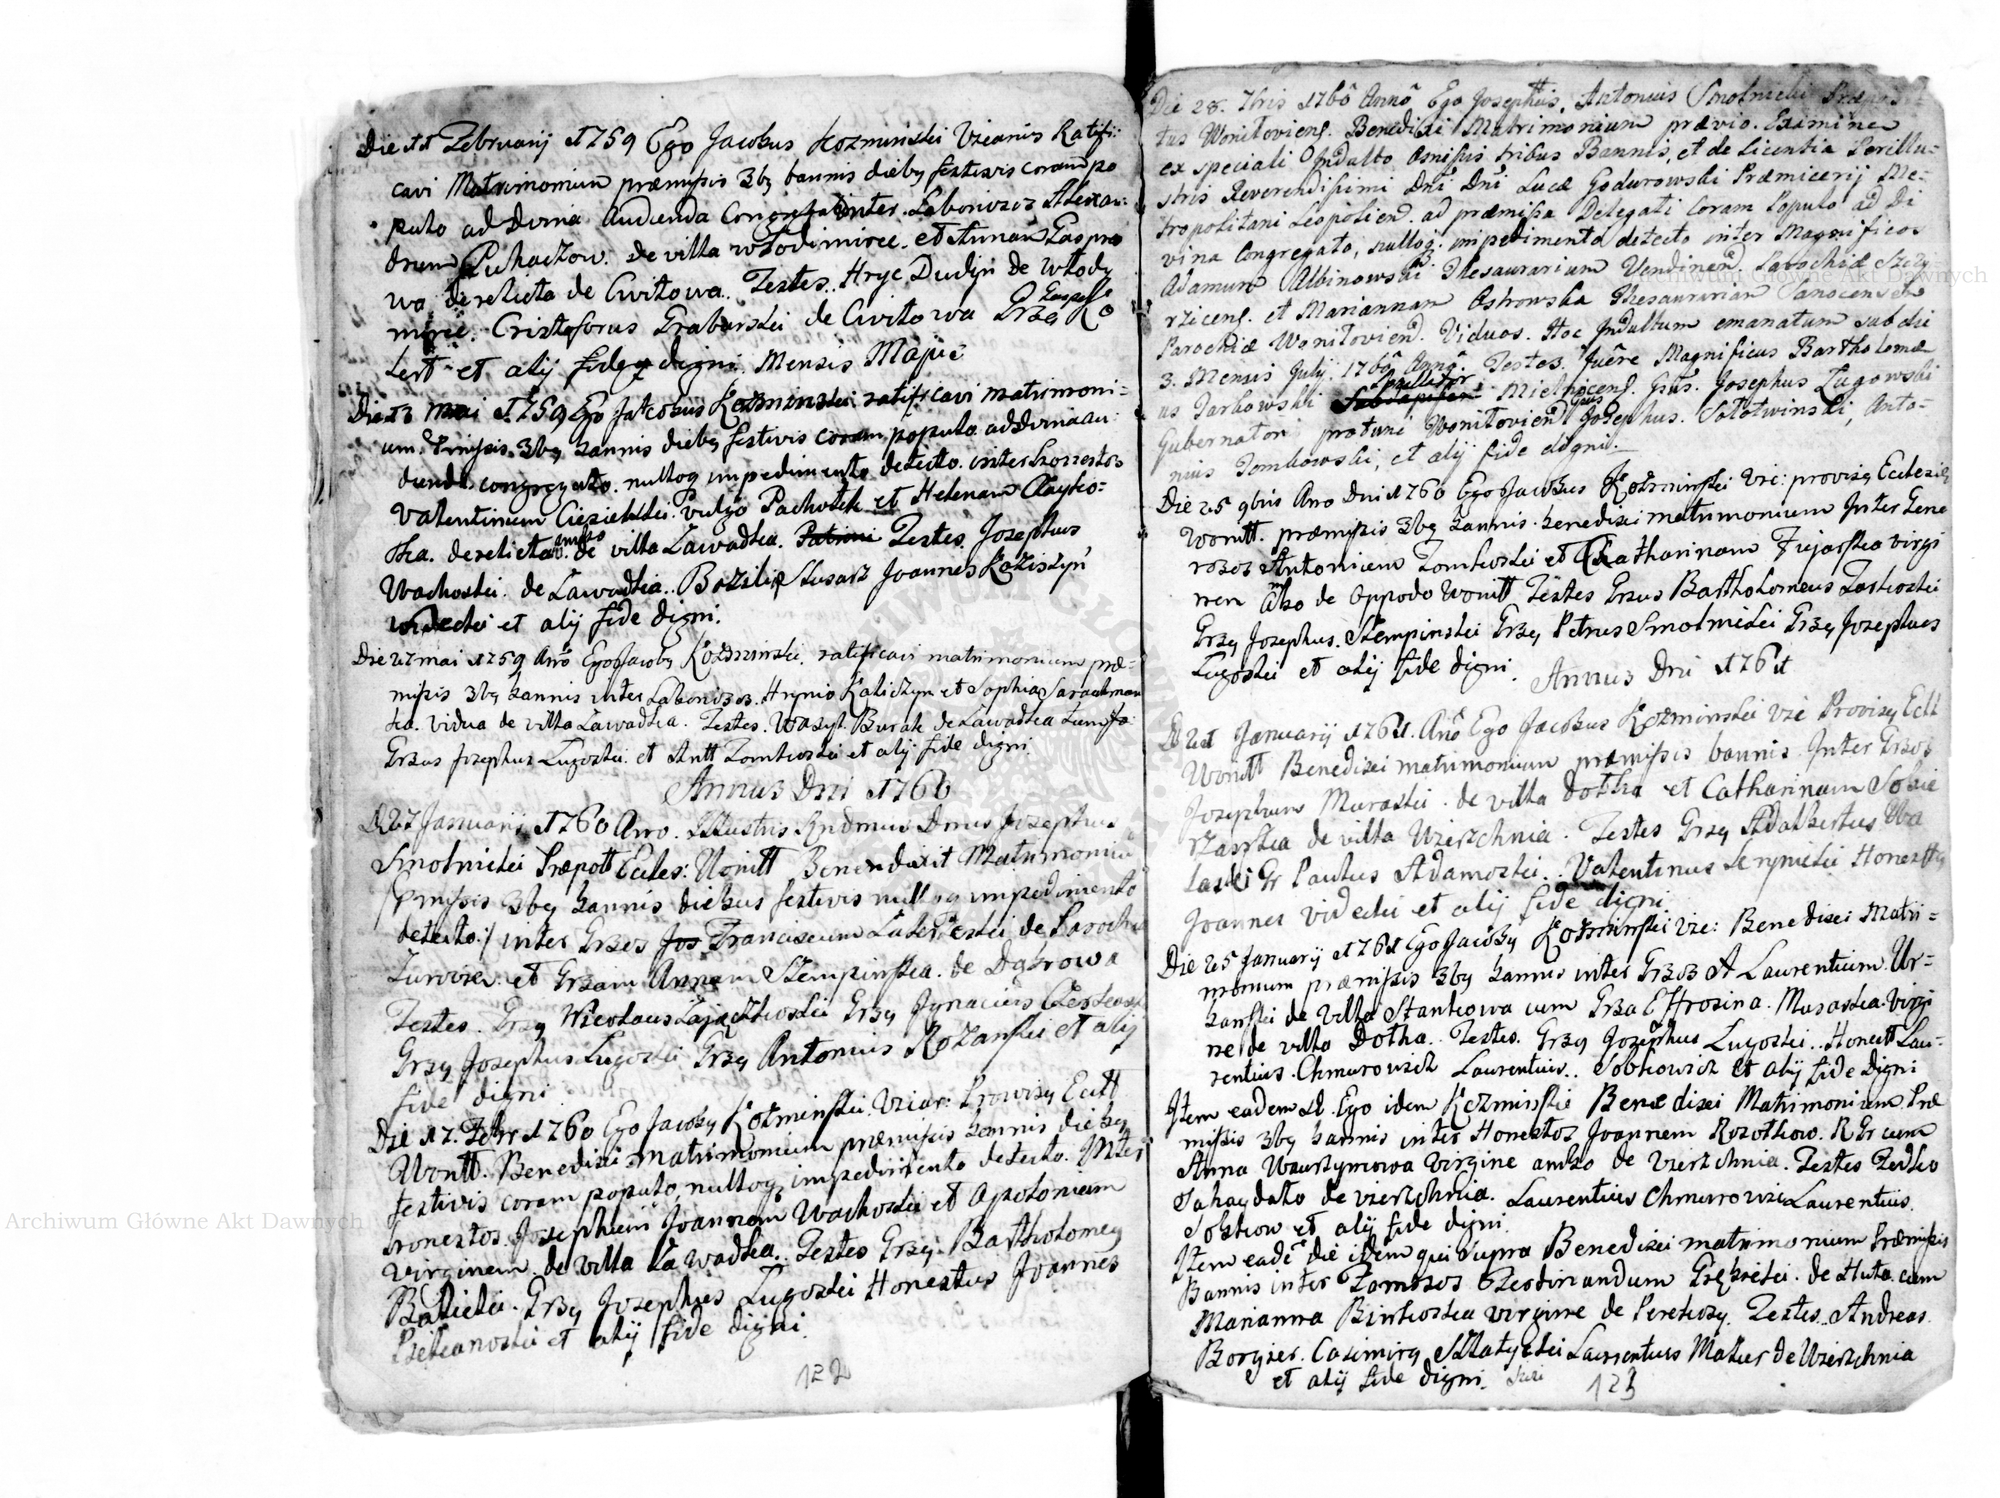 Die 11 Februarij 1759 Ego Jacobus Kozminski Vicarius Ratifi:
cavi Matrimonium præmissis 3bq bannis diebq festivis coram po
pulo ad Divina Audienda Congregato inter Laboriosos Alexan:
drum Puhaczow de villa Włodimirce et Annam Gasprо
wa derelicta de Cwitowa. Testes. Hryc Dudyn de Włody
mirce. Cristoforus Grabarski de Cwitowa Grzq
et alij fide digni. Mensis Maji
Die 13 mai 1759 Ego Jacobus Kozminski ratificavi matrimoni=
um. Pmissis 3bq bannis diebq festivis coram populo ad Divina au:
dienda congregato. nulloq impedimento detecto. inter honestos
Valentinum Ciesielski vulgo Pachołek et Helenam
derelicta ambo de villa Zawadka. Testes Josephus
Wachoski. de Zawadka. Joannes
et alij fide digni.
Die 27 mai 1759 Ano Ego Jacobq Kozminski. ratificavi matrimonium præ=
missis 3bq bannis inter Laboriosos. Hrynio Kaliczyn et Sophia
vidua de villa Zawadka. Testes. Wasyl Burak de Zawadka
Grzus Josephus Lugoski et Antt Zomkoski et alij fide digni
Annus Dni 1760
D 27 Januarij 1760 Ano. Illustris Rndmus Dnus Josephus
Smolnicki Præpott Eccles: Wonitt Benendixit Matrimoniu
/Pmissis 3bq bannis diebus festivis nulloq impedimento
detecto:/ inter Grzos Franciscum de Parochia
et Grzam Annam Stempinska de Dąbrowa
Testes. Grzq Nicolaus Grzq Ignacius
Grzq Josephus Lugoski Grzq Antonius Rozanski et alij
fide digni
Die 17. Febr 1760 Ego Jacobq Kozminski. Vicar: Provisq Eccll
Wonitt. Benedixi matrimonium præmissis bannis diebq
festivis coram populo, nulloq impedimento detecto. Inter
honestos. Josephum Joannem Wachoski et Apoloniam
virginem de villa Zawadka. Testes Grzq. Bartholomeq
Balicki. Grzq Josephus Lugoski Honestus Joannes
et alij fide digni.
122
Die 28. 7bris 1760 Anno Ego Josephus, Antonius Smolnicki Præposi
tus Wonitoviens. Benedixi Matrimonium prævio. Examine
ex speciali Indulto omissis tribus Bannis, et de Licentia Perillu=
stris Reverendissimi Dni Dni Lucæ Godurowski Præmicerij Me=
tropolitani Leopolien. ad præmissa Delegati Coram Populo ad Di
vina Congregato, nulloq. impedimento detecto inter Magnificos
Adamum Albinowski Thesaurarium Vendinen Parochiæ
rzicens. et Mariannam Ostrowska Thesaurarian Sanocensem
Parochiæ Wonitovien. Viduos. Hoc Indultum emanatum sub die
3. Mensis Julij. 1760 Anno. Testes fuêre Magnificus Bartholomæ
us Jarkowski Mielnocens. Grus. Josephus Lugowski
Gubernator protunc Wonitovien Grus Josephus. Sołotwinski, Anto=
nius Domkowski, et alij fide digni.
Die 25 9bris Ano Dni 1760 Ego Jacobus Kozminski Vic: provisq Ecclesiæ
Wonitt. præmissis 3bq bannis. benedixi matrimonium Inter Gene
rosos Antonium Zomkoski et Chatharinam Fujarska virgi
nem Ambo de Oppodo Wonitt Testes Grzus Bartholomeus Jarkoski
Grzq Josephus. Stempinski Grzq Petrus Smolnicki Grzq Josephus
Lugoski et alij fide digni.
Annus Dni 1761
D 21 Januarij 1761. Ano Ego Jacobus Kozminski Vic Provisq Ecll
Wonitt Benedixi matrimonium præmissis bannis Inter Grzos
Josephum Muraski de villa Dołha et Catharinam Sobie
rzanska de villa Wierzchnia. Testes Grzq Adalbertus
Gr Paulus Adamoski. Valentinus Honesttq
Joannes et alij fide digni
Die 25 Januarij 1761 Ego Jacobq Kozminski Vic: Benedixi Matri=
monium præmissis 3bq bannis inter Grzos A Laurentium Ur=
banski de villa Stankowa cum Grza Effrosina. Muraska virgi
ne de villa Dołha. Testes. Grzq Josephus Lugoski. Honestt Lau=
rentius Chmurowicz Laurentius. Sobkowicz et alij fide digni
Item eadem d. Ego idem Kozminski Benedixi Matrimonium. Præ
missis 3bq bannis inter Honestos Joannem
Anna Wawrzynowa virgine ambo de Vierzchnia. Testes Fedko
Sahaydako de vierzchnia. Laurentius Chmurowicz Laurentius.
Sobkow et alij fide digni.
Item eade die idem qui supra Benedixi matrimonium Præmissis
Bannis inter Famosos Ferdinandum Grębski de Huta cum
Marianna Binkoska virgine de Perekosy. Testes. Andreas
Borysies. Casimirq Laurentius Makues de Wierzchnia
et alij fide digni.
123
Archiwum Główne Akt Dawnych
Archiwum Główne Akt Dawnych